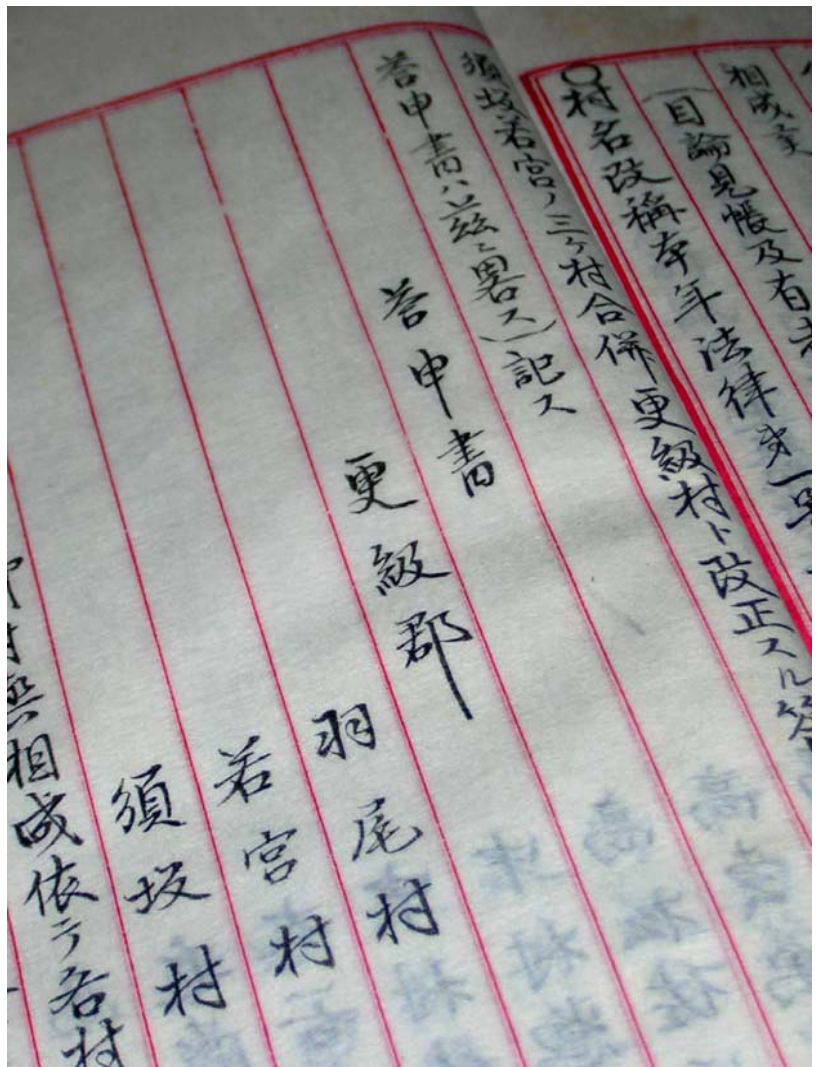 相成
(目論見帳及有
○村名改稱本年法律才一号
須坂若宮ノ三ケ村合併更級村ト改正スル答
答申書ハ茲ニ畧ス)記ス
答申書
更級郡
羽尾村
若宮村
須坂村
相成依テ各村